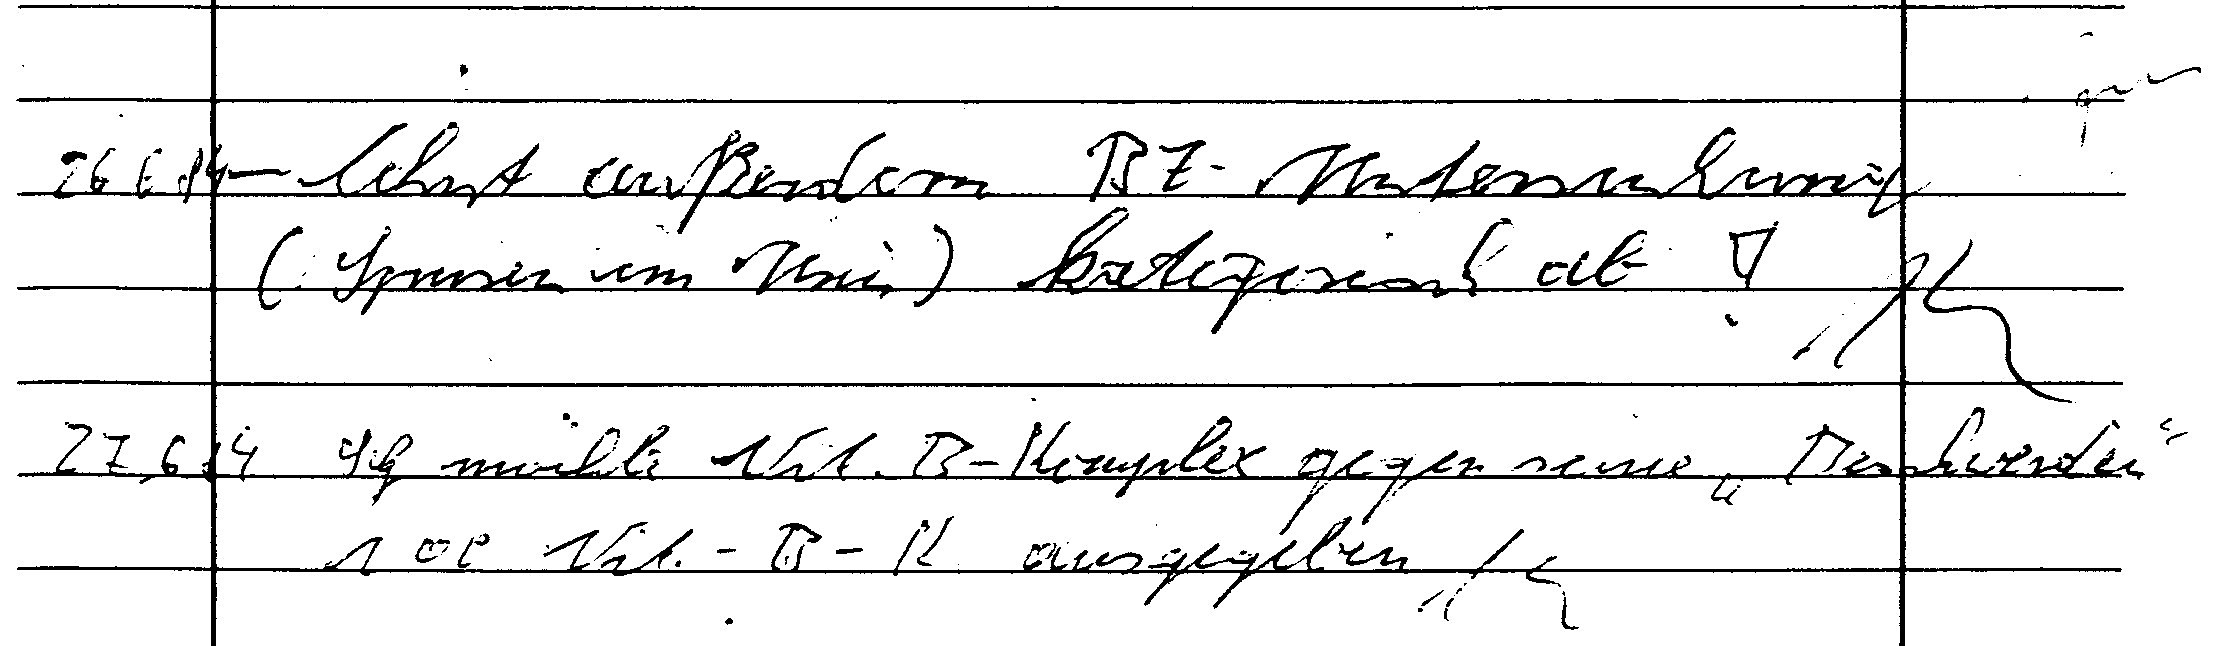 26.6.14 – lehnt außerdem BZ-Untersuchung
(Spuren im Urin) kategorisch ab !
27.6.14 Hg möchte Vit. B-Komplex gegen seine „Beschwerden“
1 OP Vit.-B-K ausgegeben